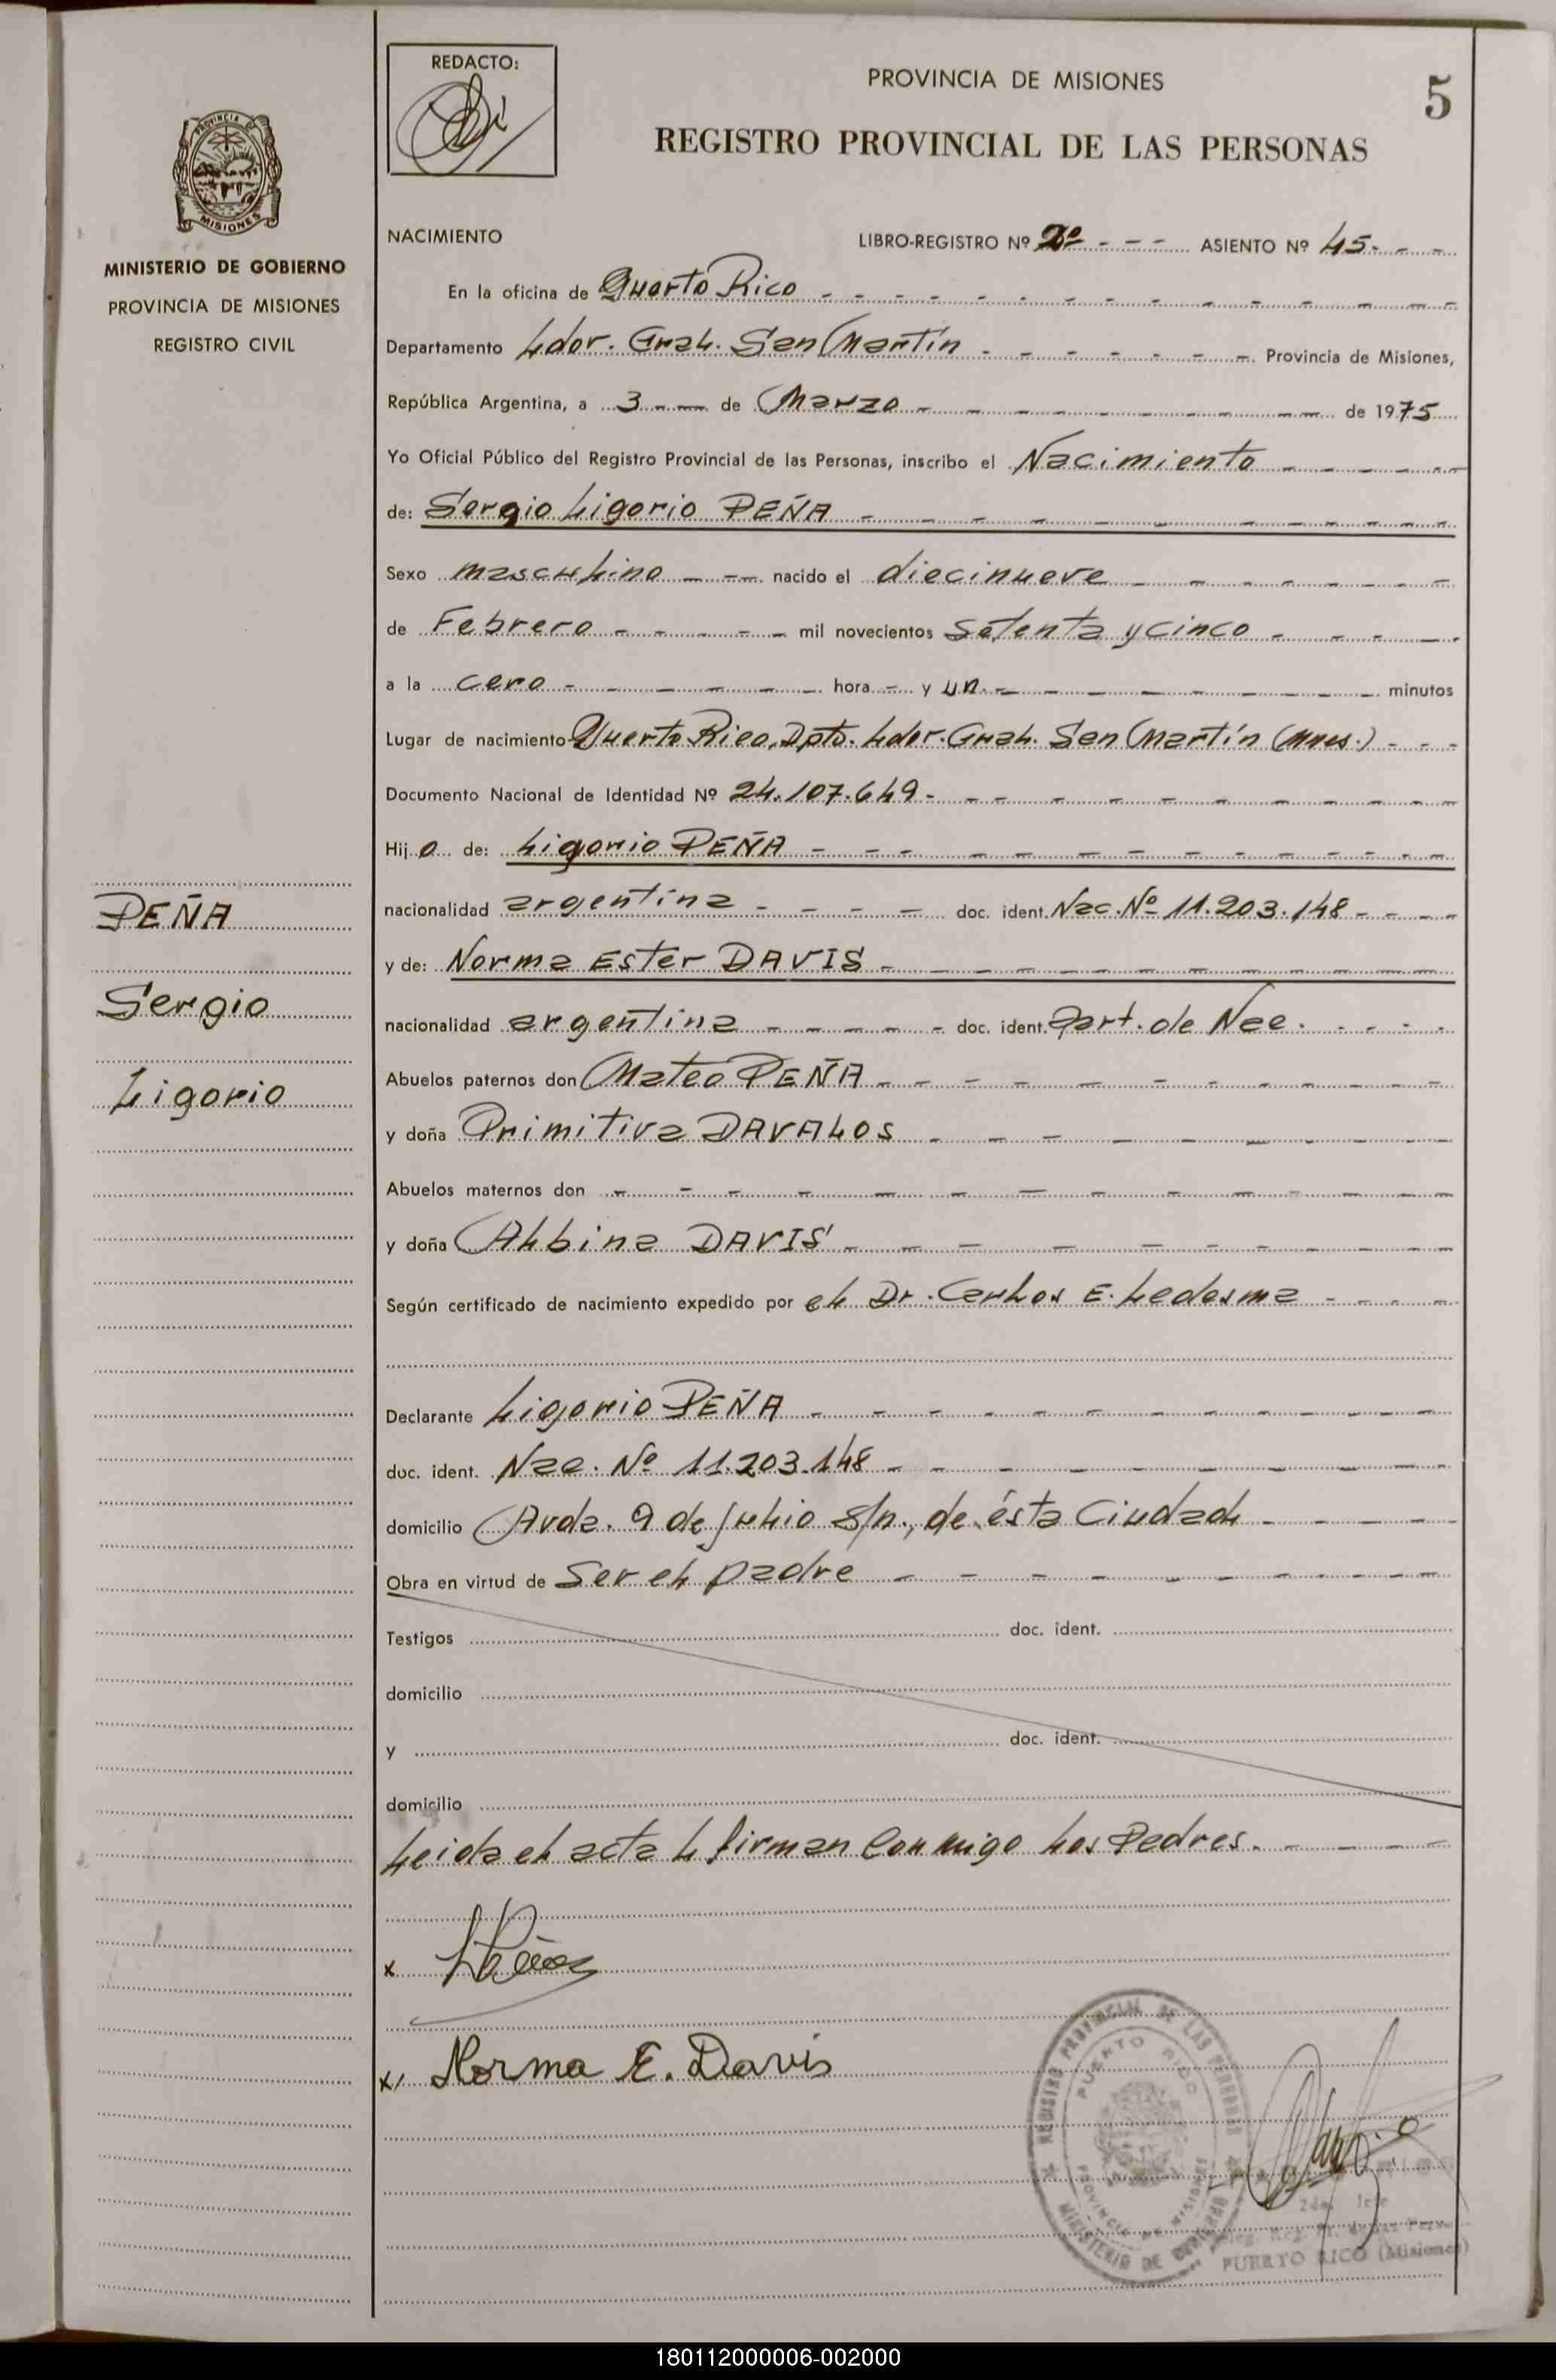 REDACTO:
PROVINCIA DE MISIONES
5
REGISTRO PROVINCIAL DE LAS PERSONAS
PROVINCIA DE
MISIONES
MINISTERIO DE GOBIERNO
PROVINCIA DE MISIONES
REGISTRO CIVIL
NACIMIENTO LIBRO-REGISTRO Nº 2º - - - ASIENTO Nº 45 - - -
En la oficina de Puerto Rico
Departamento Ldor. Gral. San Martín Provincia de Misiones,
República Argentina, a 3 de Marzo de 1975
Yo Oficial Público del Registro Provincial de las Personas, inscribo el Nacimiento
de: Sergio Ligorio PEÑA
Sexo masculino nacido el diecinueve
de Febrero mil novecientos Setenta y cinco
a la cero hora y un minutos
Lugar de nacimiento Puerto Rico, Dpto. Ldor. Gral. San Martín (Mnes.)
Documento Nacional de Identidad Nº 24.107.649
Hijo de: Ligorio PEÑA
nacionalidad argentina doc. ident. Nac. Nº 11.203.148
y de: Norma Ester DAVIS
nacionalidad argentina doc. ident. Part. de Nac.
Abuelos paternos don Mateo PEÑA
y doña Primitiva DAVALOS
Abuelos maternos don
y doña Albina DAVIS
Según certificado de nacimiento expedido por el Dr. Carlos E. Ledesma
Declarante Ligorio PEÑA
doc. ident. Nac. Nº 11.203.148
domicilio Avda. 9 de Julio S/n., de ésta Ciudad
Obra en virtud de Ser el padre
Testigos doc. ident.
domicilio
y doc. ident.
domicilio
Leida el acta L firman conmigo los Padres.
x
x Norma E. Davis
PEÑA
Sergio
Ligorio
REGISTRO PROVINCIAL DE LAS PERSONAS
PUERTO RICO
PROVINCIA DE MISIONES
MINISTERIO DE GOBIERNO
2do. Jefe
PUERTO RICO (Misiones)
180112000006-002000